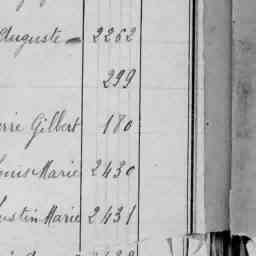 Auguste 2262
299
erre Gilbert 180
ouis Marie 2430
ustin Marie 2431